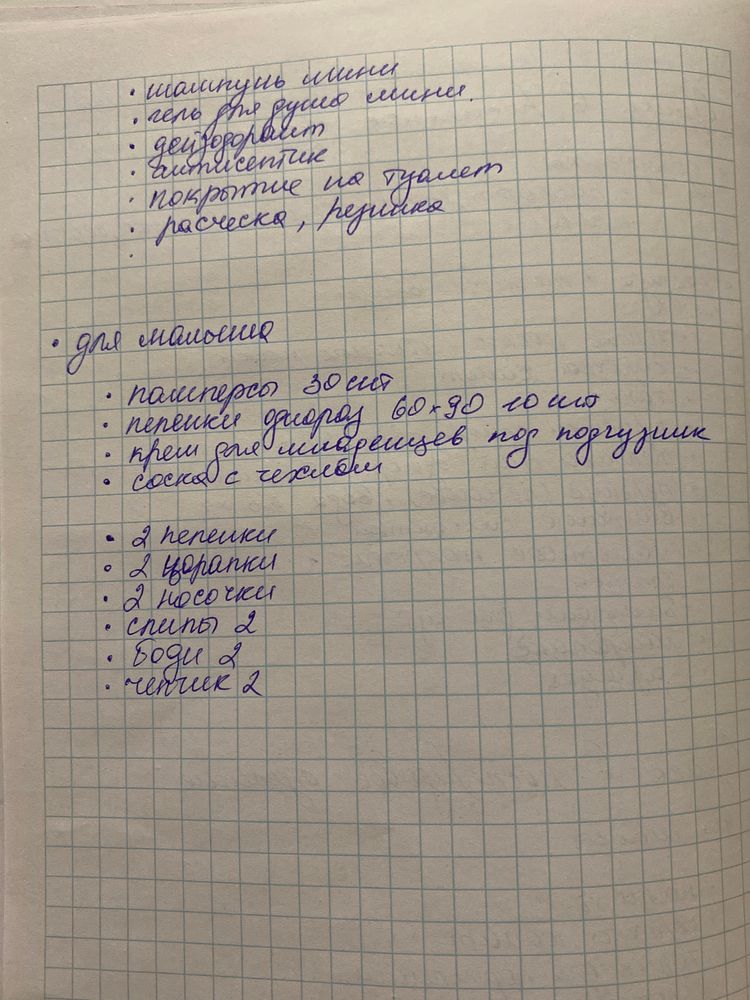 • шампунь мини
• гель для душа мини
• дейзодорант
• антисептик
• покрытие на туалет
• расческа, резинка
•
• для малыша
• памперсы 30 шт
• пеленки однораз 60×90 10 шт
• крем для младенцев под подгузник
• соска с чехлом
• 2 пеленки
• 2 царапки
• 2 носочки
• слипы 2
• боди 2
• чепчик 2